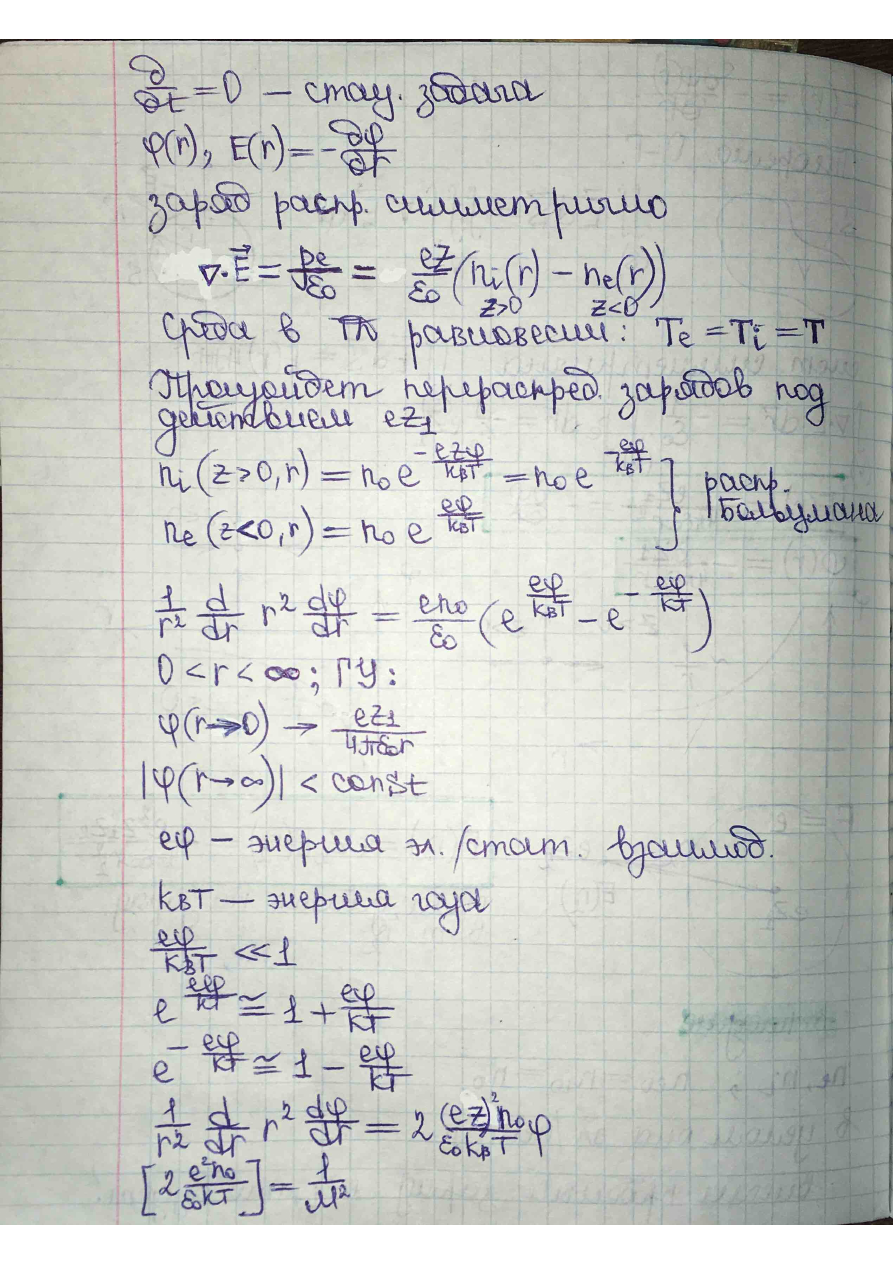 ∂/∂t = 0 – стац. задача
φ(r), E(r) = -∂φ/∂r
заряд распр. симметрично
∇·E⃗ = ρe/ε₀ = eZ/ε₀ (nᵢ(r) - nₑ(r))
z>0 z<0
Среда в равновесии: Tₑ = Tᵢ = T
Произойдет перераспред. зарядов под
действием eZ₁
nᵢ(z>0, r) = n₀ e^(-ezφ/kвT) = n₀ e^(-eφ/kвT)
распр.
Больцмана
nₑ(z<0, r) = n₀ e^(eφ/kвT)
1/r² d/dr r² dφ/dr = en₀/ε₀ (e^(eφ/kвT) - e^(-eφ/kT))
0 < r < ∞; ГУ:
φ(r→0) → eZ₁/4πε₀r
|φ(r→∞)| < const
eφ – энергия эл./стат. взаимод.
kвT – энергия газа
eφ/kвT ≪ 1
e^(eφ/kT) ≅ 1 + eφ/kT
e^(-eφ/kT) ≅ 1 - eφ/kT
1/r² d/dr r² dφ/dr = 2 (eZ)²n₀/ε₀kвT φ
[2 e²n₀/ε₀kT] = 1/м²